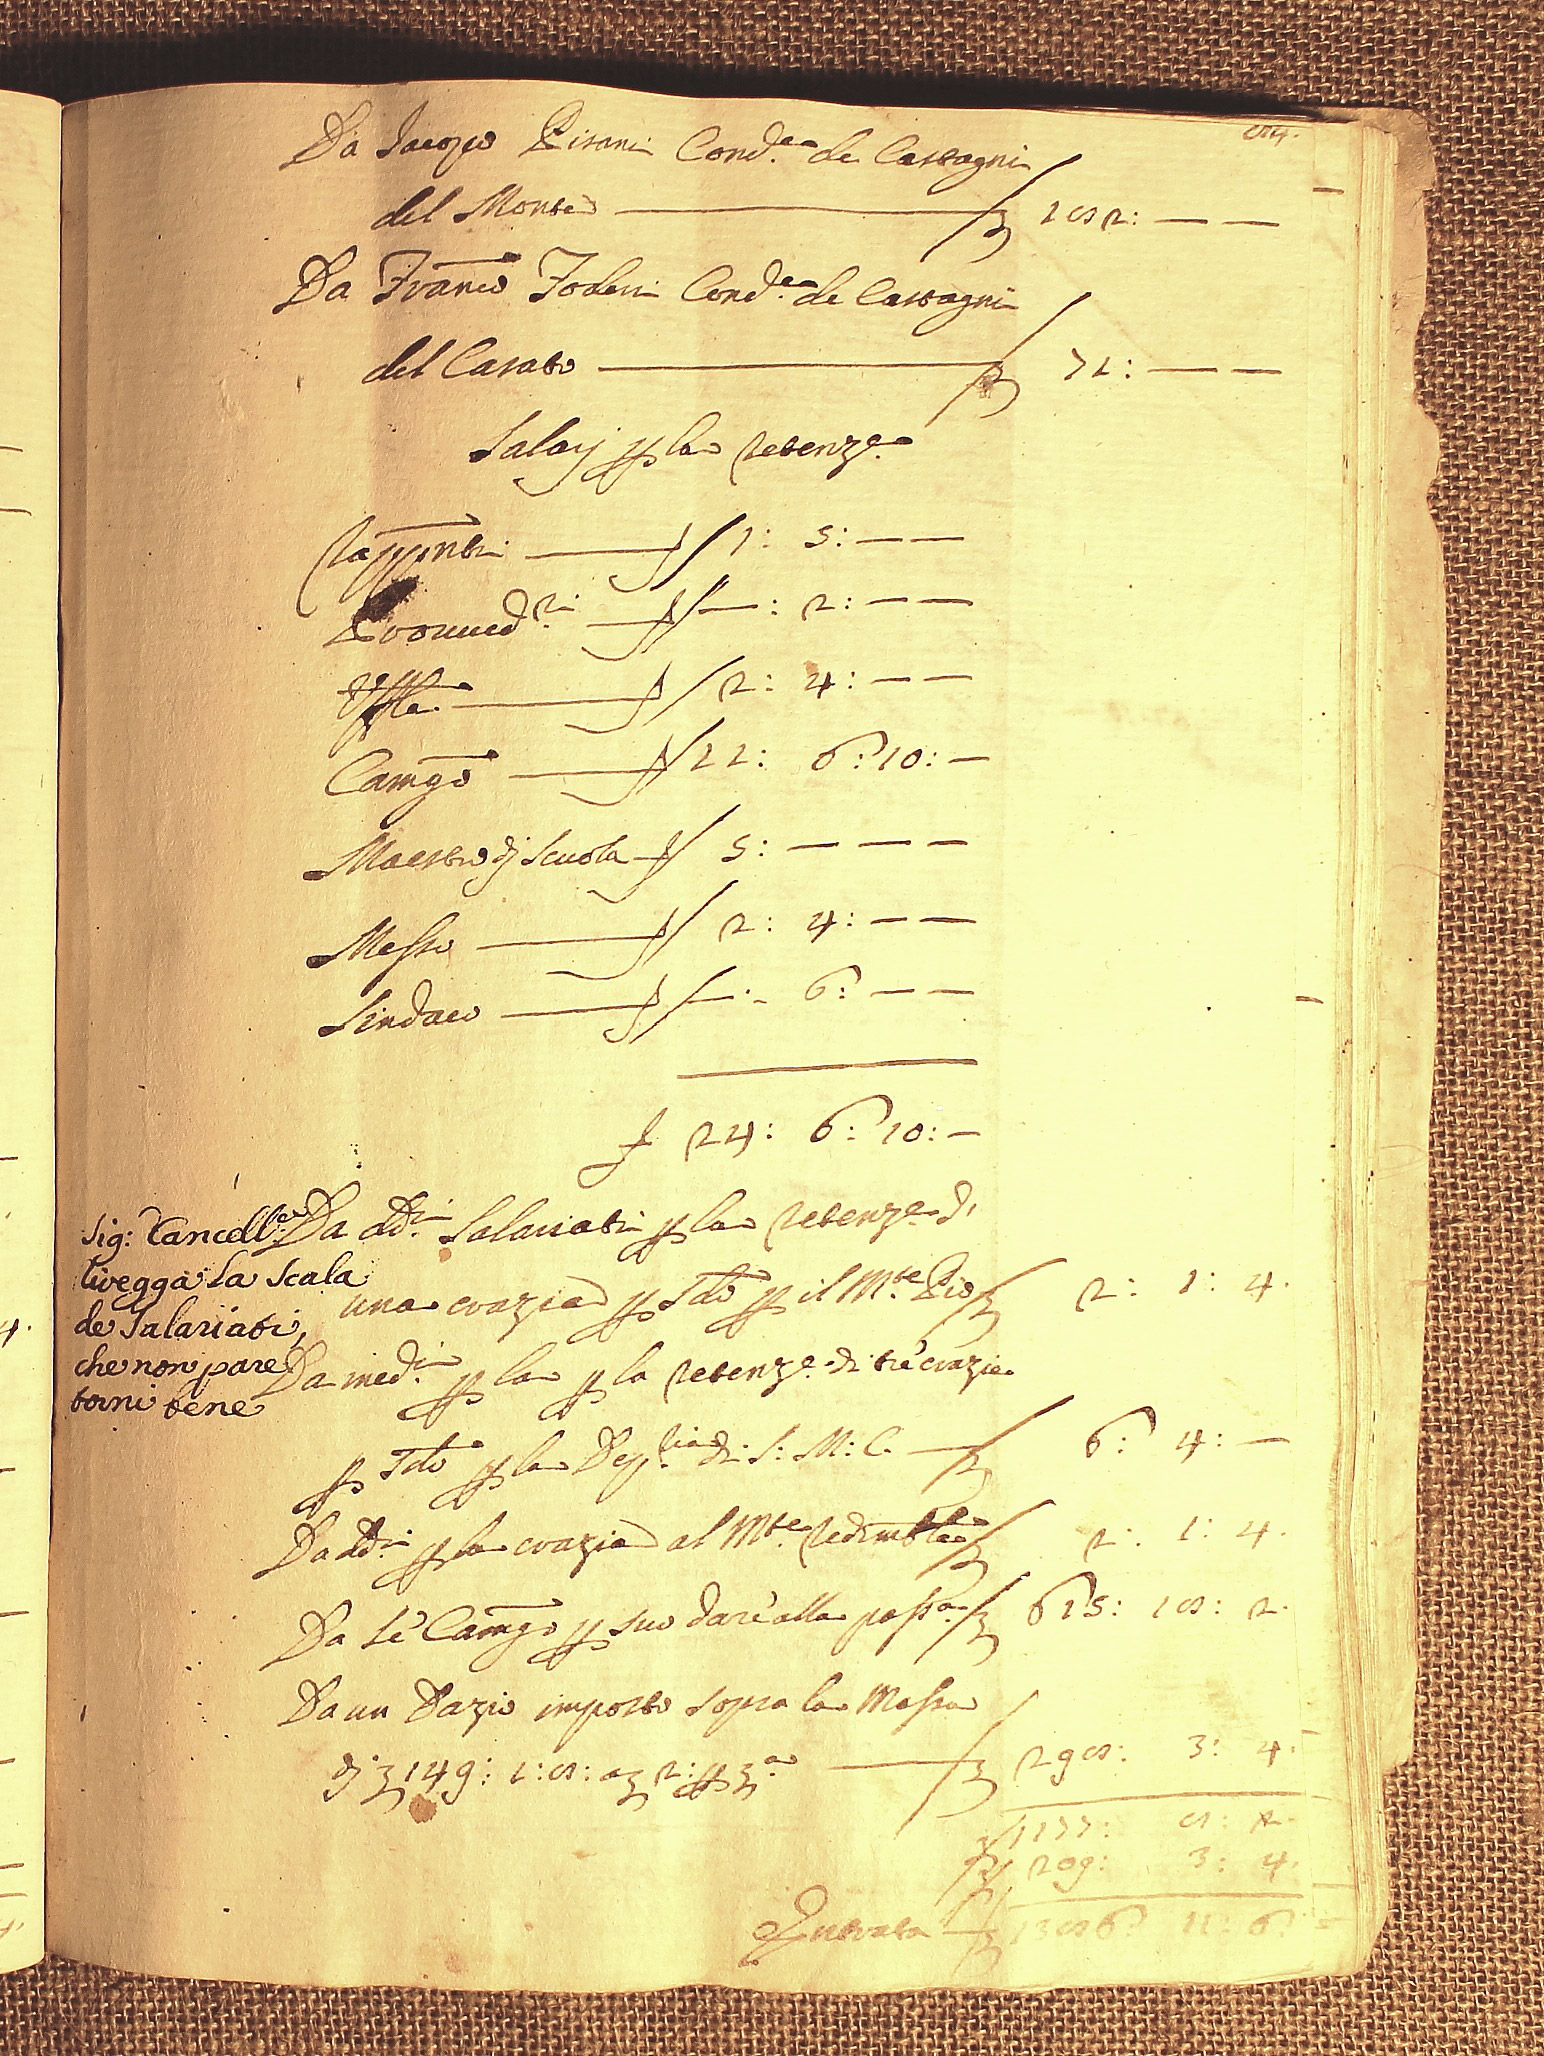 84.
Da Jacopo Pisani Cond.re de Castagni
del Monte — £ 182: — —
Da Franco Foderi Cond.re de Castagni
del Casato — £ 71: — —
Salarj p la retenz.e
Rapp̃nti — f 1: 5: — —
Provved.ri — f —: 2: — —
Uffle — f 2: 4: — —
Camgo — f 11: 6: 10: —
Maestro dj Scuola — f 5: — — —
Messo — f 2: 4: — —
Sindaco — f — 6: — —
f 24: 6: 10: —
Sig: Cancell.re
si vegga la scala
de Salariati,
che non pare
torni bene
Da dd.i Salariati p la retenz.e di
una crazia p sdo p il M.te Pio £ 2: 1: 4.
Da med.i p la p la retenz.e di tre crazie
p sdo p la Dep.ria di S: M: C. — £ 6: 4: —
Da dd.i p la crazia al M.te redimble £ 2: 1: 4.
Da sè Camgo p suo dare alla passa £ 615: 18: 2.
Da un Dazio imposto sopra la Massa
dj £ 149: 1: 8: a £ 2: p £a — £ 298: 3: 4.
£ 1177: 8: 2.
£ 209: 3: 4.
Entrata — £ 1386: 11: 6.